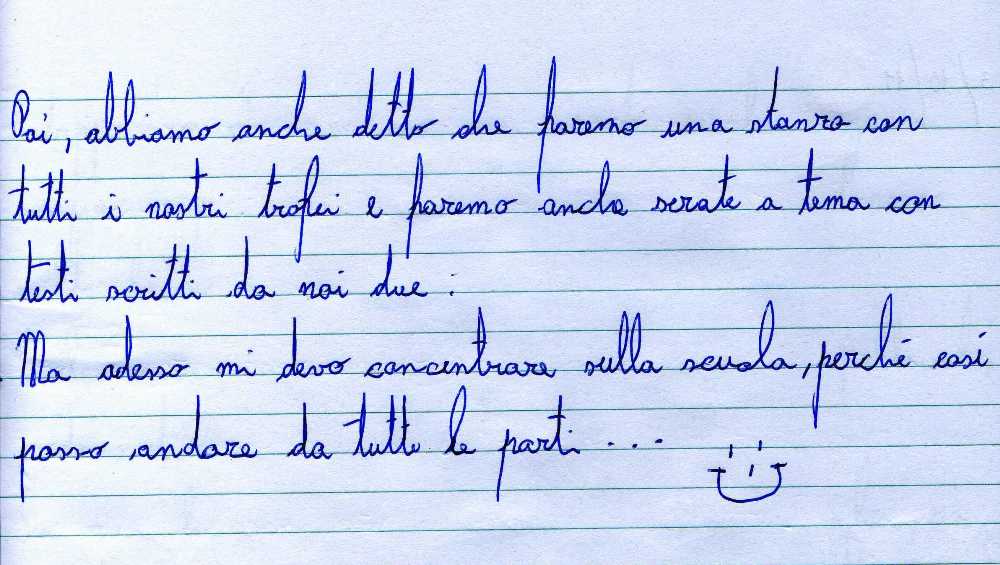 Poi, abbiamo anche detto che faremo una stanza con
tutti i nostri trofei e faremo anche serate a tema con
testi scritti da noi due.
Ma adesso mi devo concentrare sulla scuola, perché così
posso andare da tutte le parti ...